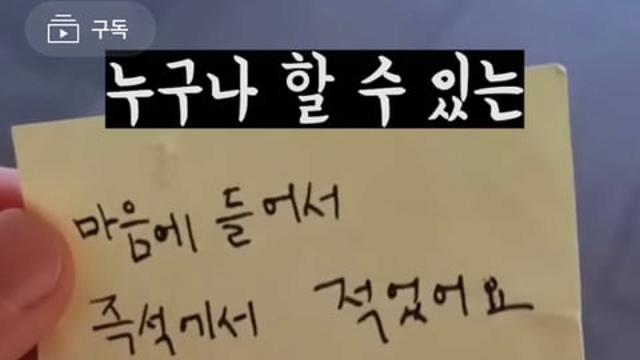 구독
누구나 할 수 있는
마음에 들어서
즉석에서 적었어요